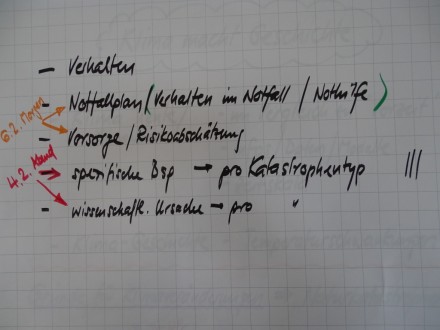 - Verhalten
- Notfallplan (Verhalten im Notfall / Nothilfe)
6.2. Morgen
- Vorsorge / Risikoabschätzung
4.2. Abend
- spezifische Bsp → pro Katastrophentyp |||
- wissenschaftl. Ursache → pro "